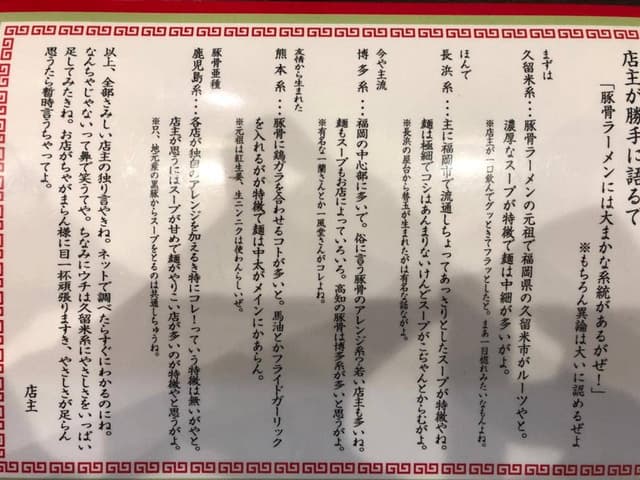 店主が勝手に語るで
「豚骨ラーメンには大まかな系統があるがぜ！」
※もちろん異論は大いに認めるぜよ
まずは
久留米系・・・豚骨ラーメンの元祖で福岡県の久留米市がルーツやと。
濃厚なスープが特徴で麺は中細が多いがよ。
※店主が一口飲んでグッときてフラッとしたと。まあ一目惚れみたいなもんよね。
ほんで
長浜系・・・主に福岡市で流通しちょってあっさりとしたスープが特徴やね。
麺は極細でコシはあんまりないけんどスープがこぢゃんとからむがよ。
※長浜の屋台から替玉が生まれたがは有名な話ながよ。
今や主流
博多系・・・福岡の中心部に多いで。俗に言う豚骨のアレンジ系っ若い店主も多いね。
麺もスープもお店によっていろいろ。高知の豚骨は博多系が多いと思うがよ。
※有名な一蘭さんとか一風堂さんがコレよね。
友情から生まれた
熊本系・・・豚骨に鶏ガラを合わせるコトが多いと。馬油とかフライドガーリック
を入れるがが特徴で麺は中太がメインにかあらん。
※元祖は紅生姜、生ニンニクは使わんらしいぜ。
豚骨亜種
鹿児島系・・・各店が独自のアレンジを加えるき特にコレ！っていう特徴は無いがやと。
店主が思うにはスープが甘めで麺がやりこい店が多いのが特徴やと思うがよ。
※只、地元産の黒豚からスープをとるのは共通しちゅうね。
以上、全部さみしい店主の独り言やきね。ネットで調べたらすぐにわかるのにね。
なんちゃじゃないって葬って笑うてや。ちなみにウチは久留米系にやさしさをいっぱい
足してみたきね。お店がちゃがまらん様に目一杯頑張りますき、やさしさが足らん
思うたら暫時言うちゃってよ。
店主